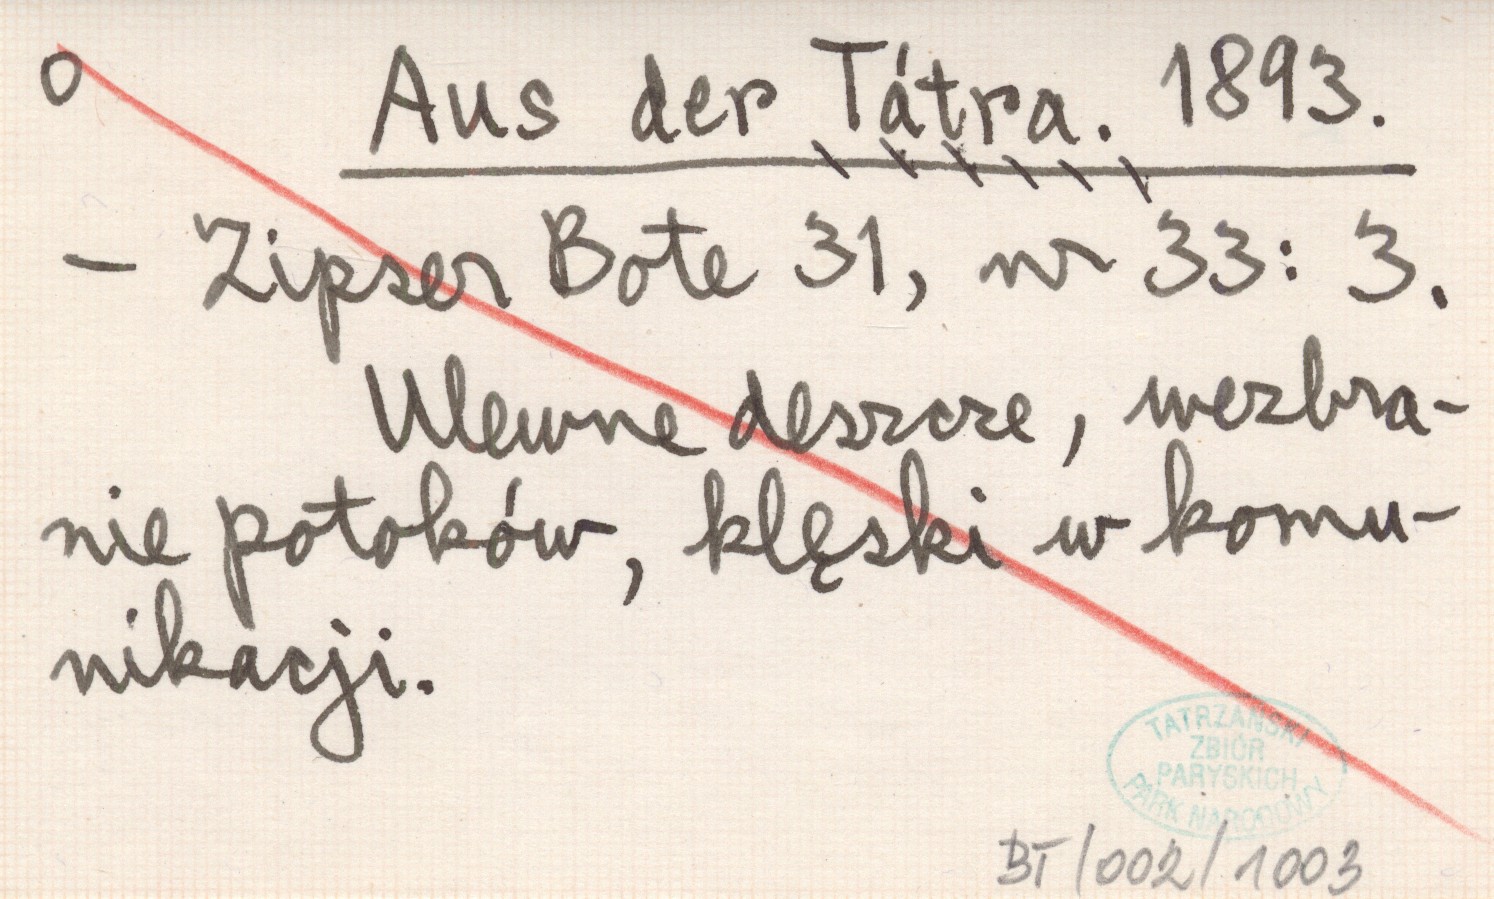 O Aus der Tátra. 1893.
— Zipser Bote 31, nr 33: 3.
Ulewne deszcze, wezbra-
nie potoków, klęski w komu-
nikacji.
TATRZAŃSKI
ZBIÓR
PARYSKICH
PARK NARODOWY
BT/002/1003